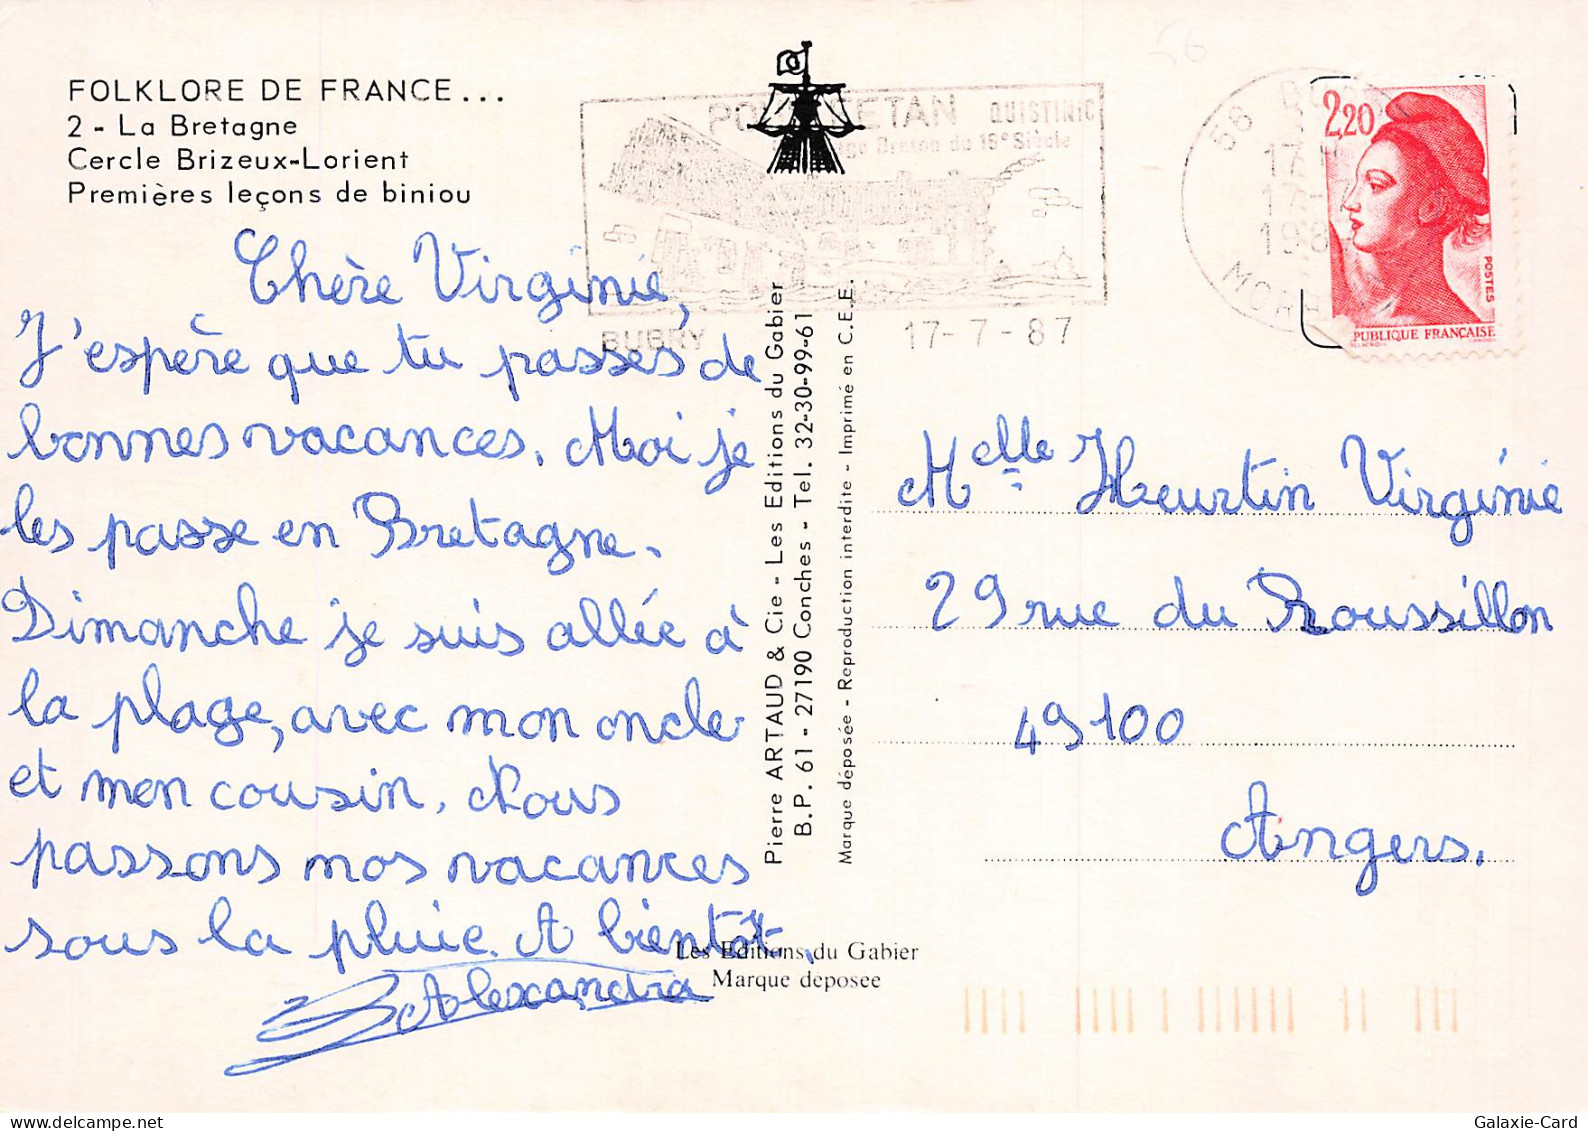 FOLKLORE DE FRANCE...
2 - La Bretagne
Cercle Brizeux-Lorient
Premières leçons de biniou
Chère Virginie,
J'espère que tu passes de
bonnes vacances. Moi je
les passe en Bretagne.
Dimanche je suis allée à
la plage, avec mon oncle
et mon cousin. Nous
passons nos vacances
sous la pluie. A bientôt.
Alexandra
QUISTINIC
Breton du 18e Siècle
BUBRY
17-7-87
Pierre ARTAUD & Cie - Les Editions du Gabier
B.P. 61 - 27190 Conches - Tel. 32-30-99-61
Marque déposée - Reproduction interdite - Imprimé en C.E.E.
Les Editions du Gabier
Marque déposée
2,20
POSTES
PUBLIQUE FRANÇAISE
Melle Heurtin Virginie
29 rue du Roussillon
49100
Angers.
delcampe.net
Galaxie-Card